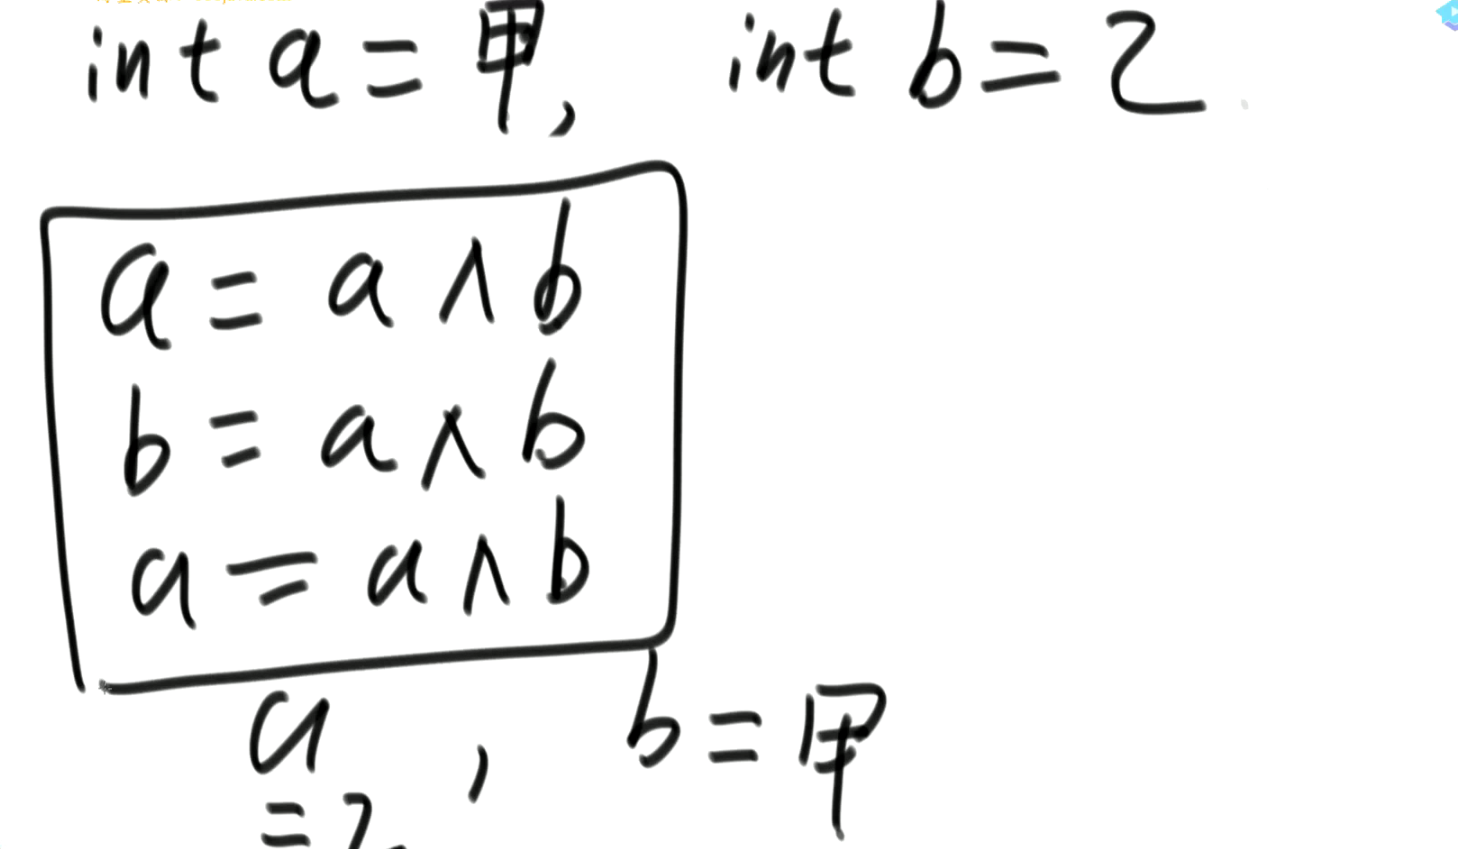 int a = 甲, int b = 2
a = a ∧ b
b = a ∧ b
a = a ∧ b
a , b = 甲
= 2